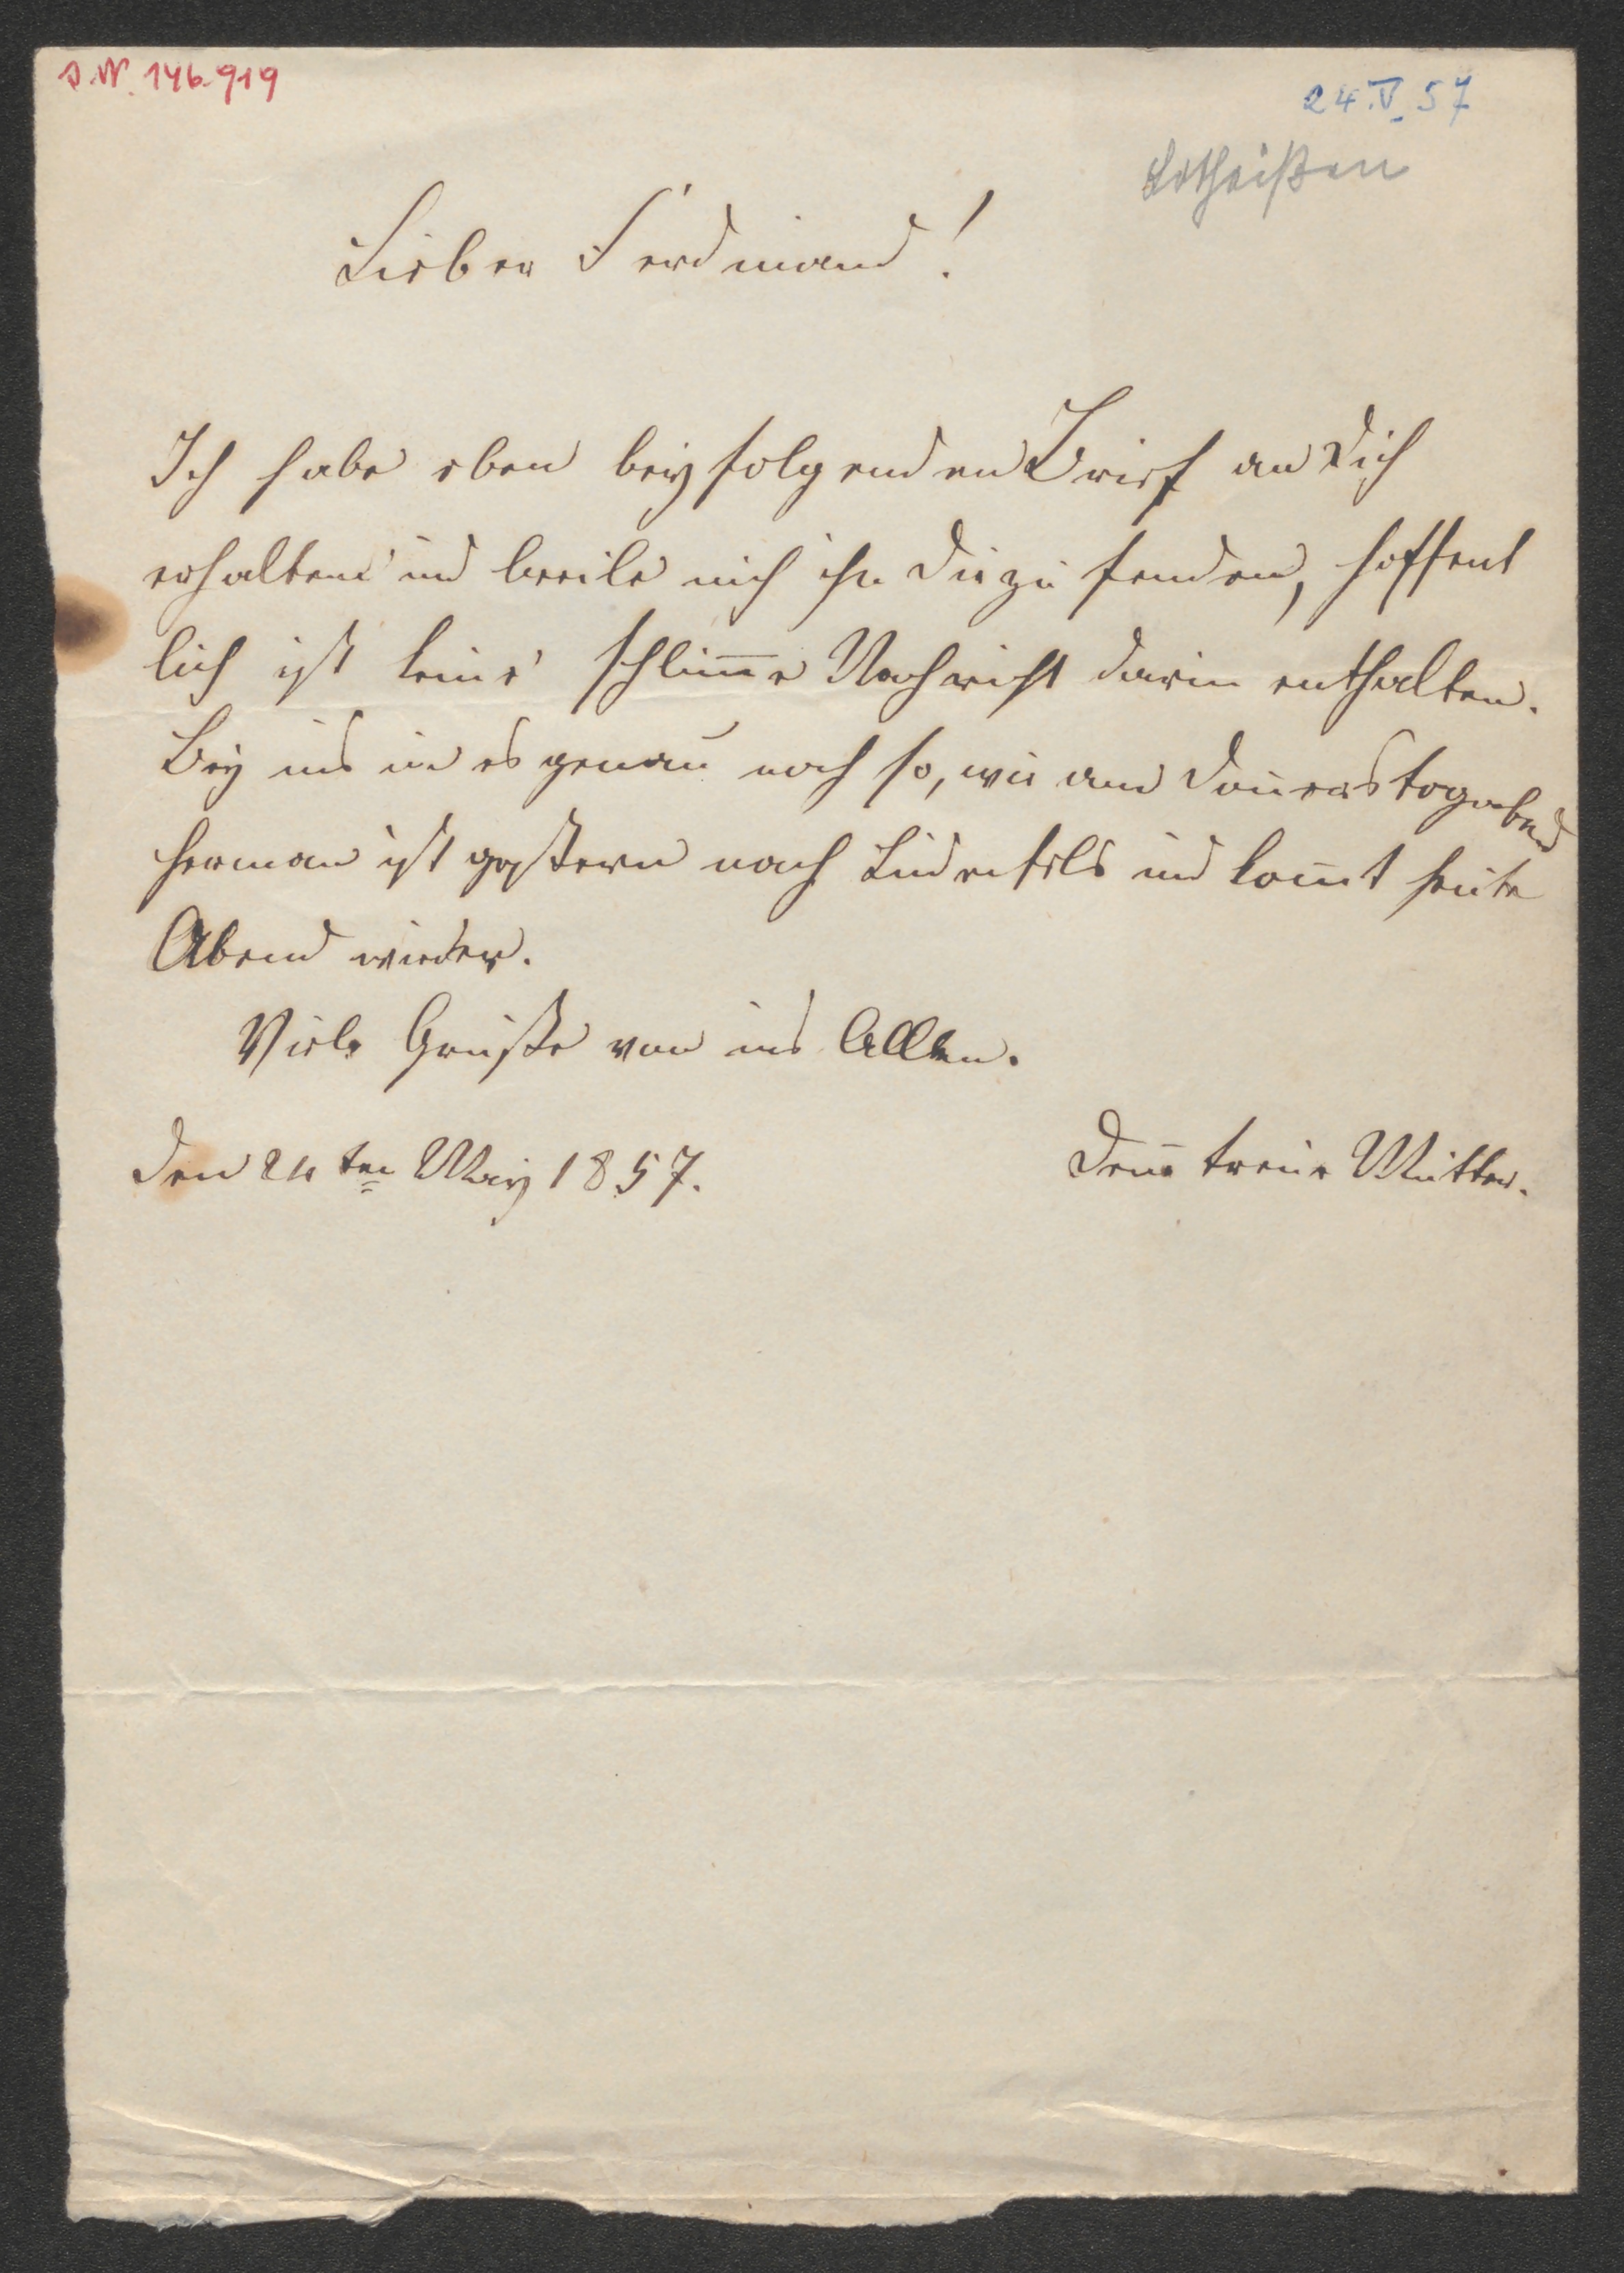 J.N. 146.919
24.V.57
Lotheißen
Lieber Ferdinand!
Ich habe eben beyfolgenden Brief an Dich
erhalten und beeile mich ihn Dir zu senden, hoffent
lich ist keine schlim̅e Nachricht darin enthalten.
Bey uns es genau noch so, wie am Donnerstagabend
Herman ist gestern nach Lindenfels und kom̅t heute
Abend wieder.
Viele Grüße von uns Allen.
den 24ten May 1857.
Deine treue Mutter.